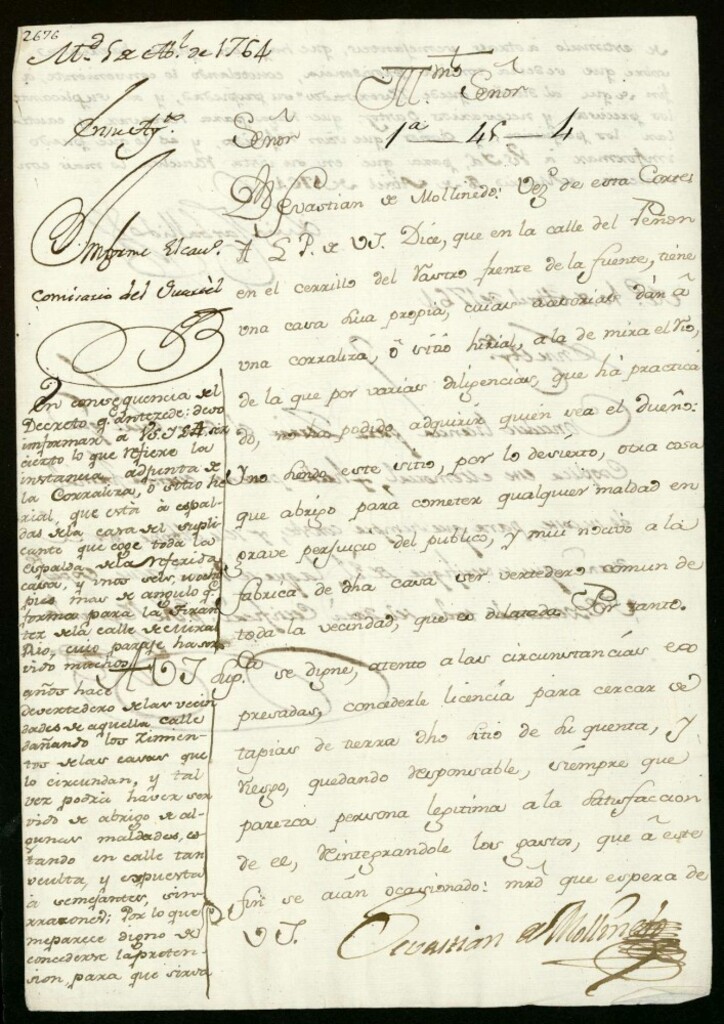 2676
M.d 5 de Ab.l de 1764
Yll.mo Señor
1a—45—4
En su Ay.to
Señor
Ynforme el cav.o
Comisario del Quartel
Dn Sevastian de Mollinedo: Vez.o de esta Corte:
A L. P. de V.S. Dice, que en la calle del Peñon
en el cerrillo del Rastro frente de la fuente, tiene
una casa sua propia, cuias accesorias dán â
una corraliza, ô sitio herial, a la de mira el Rio,
de la que por varias diligencias, que há practica
do, no ha podido adquirir quien sea el dueño:
Y no siendo este sitio, por lo desierto, otra cosa
que abrigo para cometer qualquier maldad en
grave perjuicio del publico, y mui nocivo a la
fabrica de dha casa ser vertedero comun de
toda la vecindad, que es dilatada. Por tanto.
A V.S. sup.ca se digne, atento a las circunstancias ex
presadas, concederle licencia para cercar de
tapias de tierra dho sitio de su quenta, y
riesgo, quedando responsable, siempre que
parezca persona legitima a la satisfaccion
de el, reintegrandole los gastos, que â este
fin se aian ocasionado: mrd que espera de
V.S.
Sevastian de Mollinedo
En consequencia del
Decreto q. antecede: devo
informar a V.S.Y. ser
cierto lo que refiere la
instancia adjunta de
la Corraliza, ô sitio he
rial, que está a espal
das de la casa del supli
cante que coge toda la
espalda de la referida
casa, y unos seis,
pies mas de angulo q.
forma para la
de la calle de Mira el
Rio, cuio paraje ha ser
vido muchos
años hace
de vertedero de las vecin
dades de aquella calle
dañando los Zimien
tos de las casas que
lo circundan, y tal
vez podria haver ser
vido de abrigo de al
gunas maldades, es
tando en calle tan
oculta, y expuesta
a semejantes, sin
rrazones; Por lo que
me parece digno de
concederse la preten
sion, para que sirva